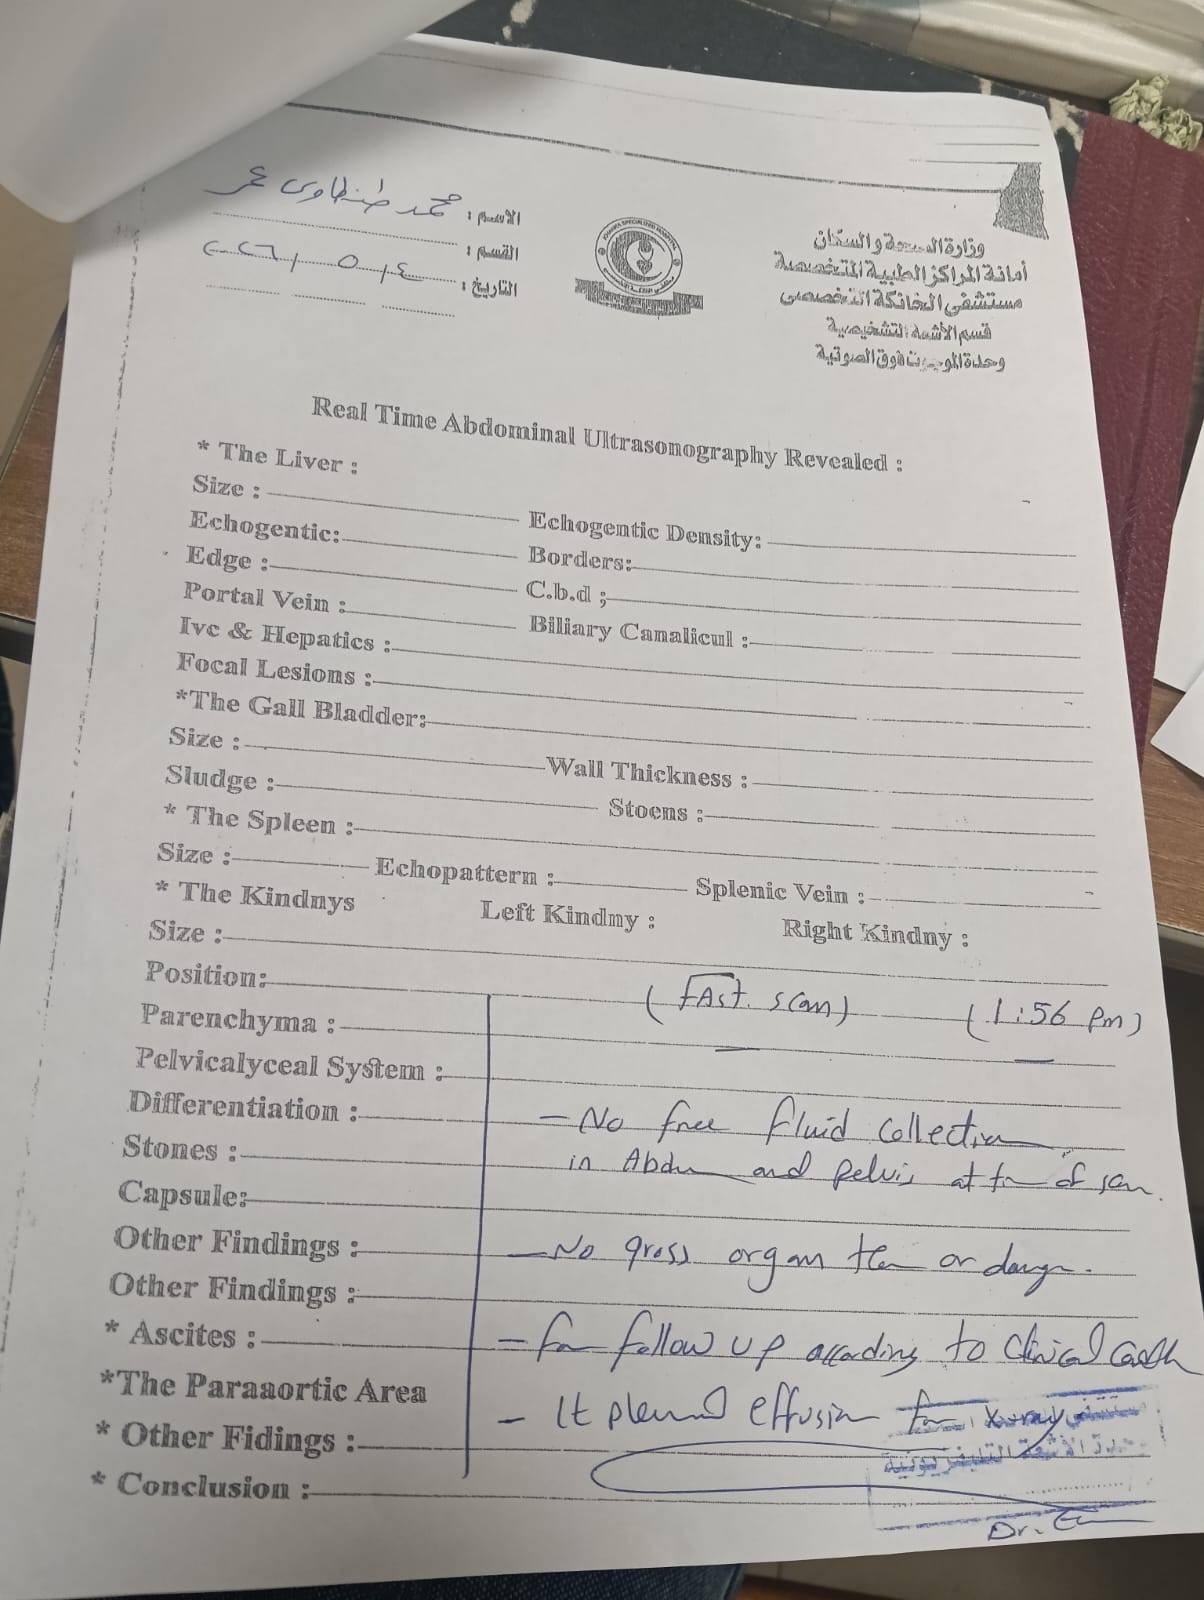 وزارة الصحة والسكان
أمانة المراكز الطبية المتخصصة
مستشفى الخانكة التخصصى
قسم الأشعة التشخيصية
وحدة الموجات فوق الصوتية
الاسم : محمد طنطاوى عمر
القسم :
التاريخ : ٤ / ٥ / ٢٠٢٦
Real Time Abdominal Ultrasonography Revealed :
* The Liver :
Size : Echogentic Density:
Echogentic: Borders:
Edge : C.b.d ;
Portal Vein : Biliary Canalicul :
Ivc & Hepatics :
Focal Lesions :
*The Gall Bladder:
Size : Wall Thickness :
Sludge : Stoens :
* The Spleen :
Size : Echopattern : Splenic Vein :
* The Kindnys Left Kindny : Right Kindny :
Size :
Position: (FAST scan) (1:56 Pm)
Parenchyma :
Pelvicalyceal System :
Differentiation : - No free fluid collection
Stones : in and pelvis at of scan.
Capsule:
Other Findings : - No gross organ or
Other Findings :
* Ascites : - for follow up according to clinical
*The Paraaortic Area
- Lt pleural effusion for X-ray
* Other Fidings :
* Conclusion :
Dr.